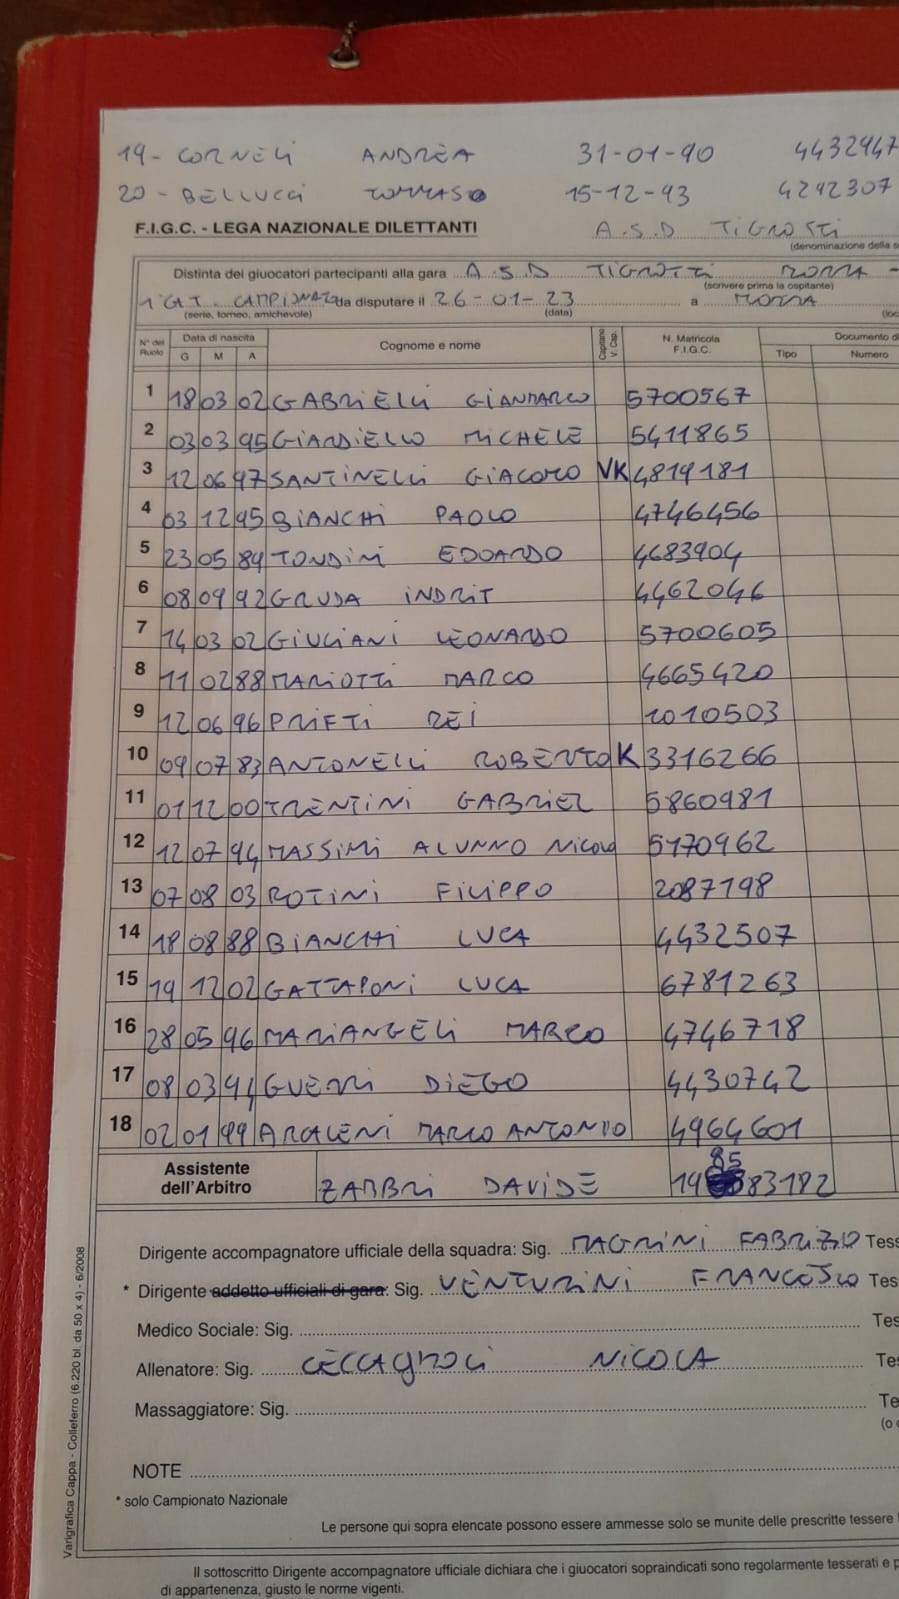 19- CORNELI ANDREA 31-01-90 4432947
20- BELLUCCI TOMMASO 15-12-93 4242307
F.I.G.C. - LEGA NAZIONALE DILETTANTI A.S.D TIGROTTI
(denominazione della s
Distinta dei giuocatori partecipanti alla gara A.S.D TIGROTTI MORRA -
(scrivere prima la ospitante)
1 CAT. CAMPIONATO da disputare il 26-01-23 a MORRA
(serie, torneo, amichevole) (data) (loc
N° del Ruolo Data di nascita G M A Cognome e nome Capitano V. Cap. N. Matricola F.I.G.C. Documento di Tipo Numero
1 18 03 02 GABRIELLI GIANMARCO 5700567
2 03 03 95 GIARDIELLO MICHELE 5411865
3 12 06 97 SANTINELLI GIACOMO VK 4819181
4 03 12 95 BIANCHI PAOLO 4746456
5 23 05 84 TONDINI EDOARDO 4683904
6 08 09 92 GRUDA INDRIT 4462046
7 14 03 02 GIULIANI LEONARDO 5700605
8 11 02 88 MARIOTTI MARCO 4665420
9 12 06 96 PRIFTI REI 1010503
10 09 07 83 ANTONELLI ROBERTO K 3316266
11 01 12 00 TRENTINI GABRIEL 5860981
12 12 07 94 MASSIMI ALUNNO NICOLO 5170962
13 07 08 03 ROTINI FILIPPO 2087198
14 18 08 88 BIANCHI LUCA 4432507
15 19 12 02 GATTAPONI LUCA 6781263
16 28 05 96 MARIANGELI MARCO 4746718
17 08 03 94 GUERRI DIEGO 4430742
18 02 01 99 ARALENI MARCO ANTONIO 4964601
Assistente dell'Arbitro ZARBRI DAVIDE 19 85 83182
Dirigente accompagnatore ufficiale della squadra: Sig. MAGRINI FABRIZIO Tess
* Dirigente addetto ufficiali di gara: Sig. VENTURINI FRANCESCO Tes
Medico Sociale: Sig. Tes
Allenatore: Sig. CECCAGNOLI NICOLA Te
Massaggiatore: Sig. Te
(o
NOTE
* solo Campionato Nazionale
Le persone qui sopra elencate possono essere ammesse solo se munite delle prescritte tessere
Il sottoscritto Dirigente accompagnatore ufficiale dichiara che i giuocatori sopraindicati sono regolarmente tesserati e
di appartenenza, giusto le norme vigenti.
Varigrafica Cappa - Colleferro (6.220 bl. da 50 x 4) - 6/2008